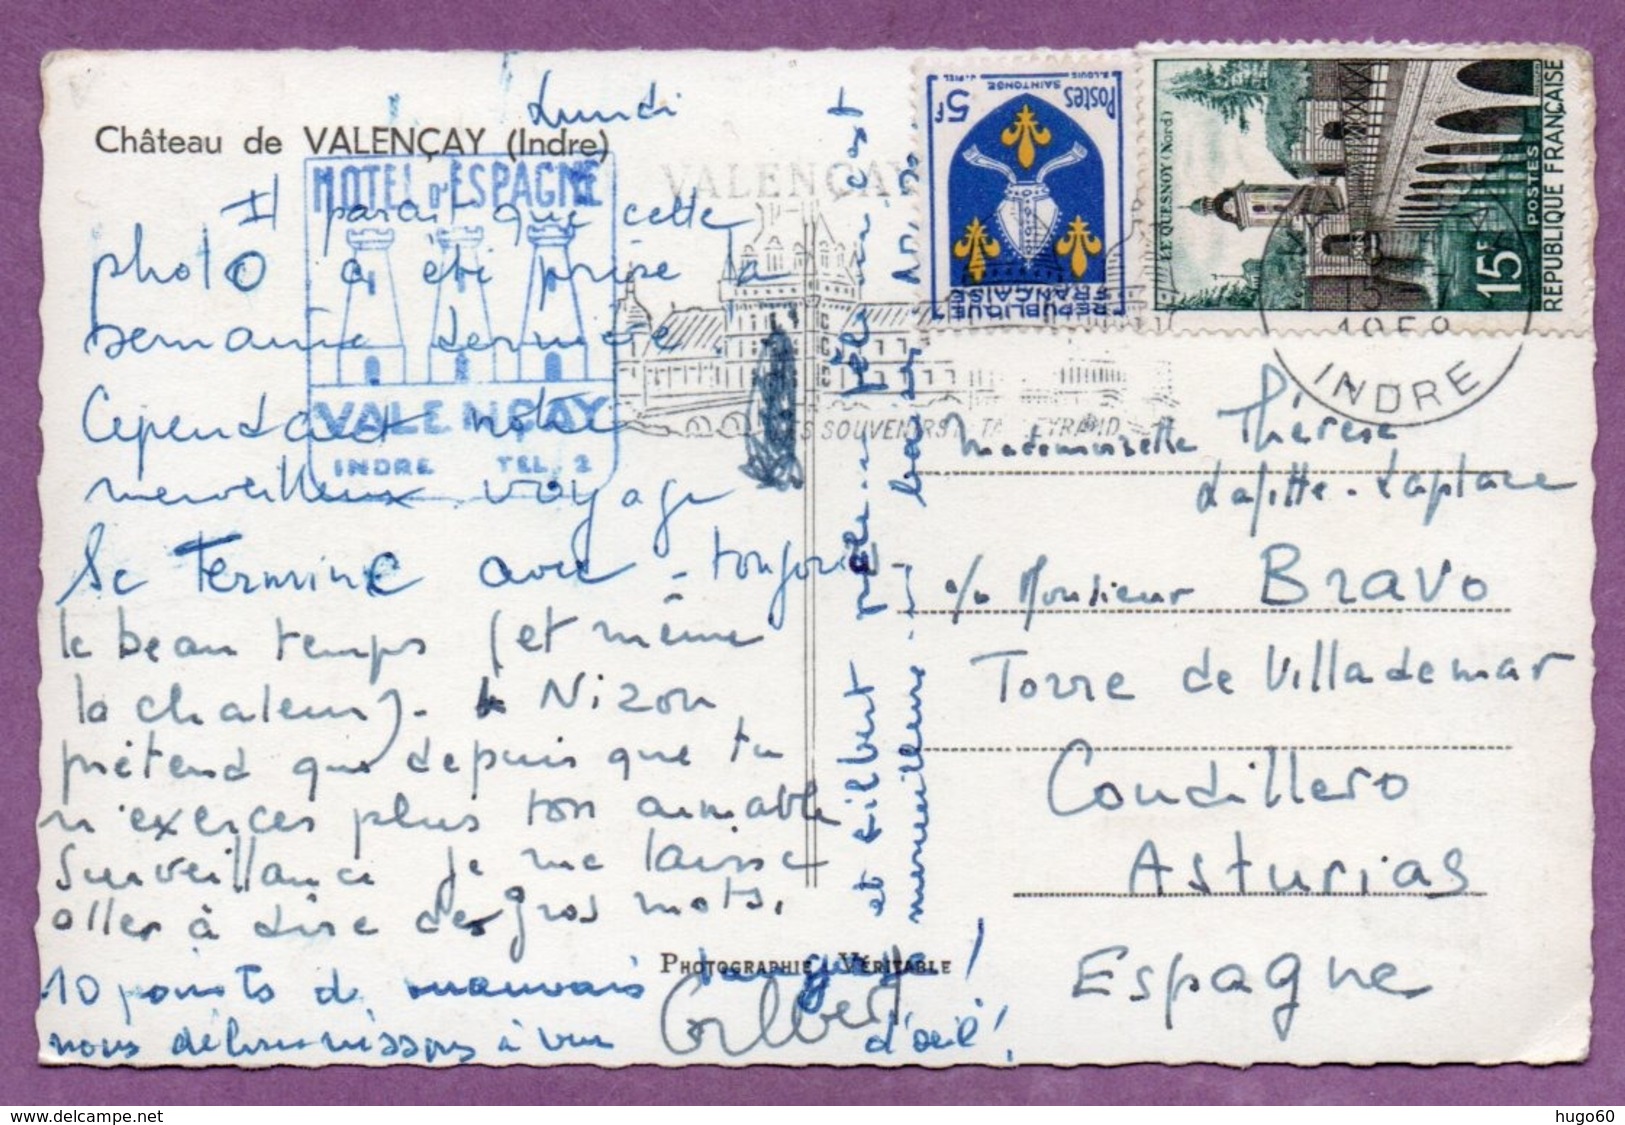 Château de VALENÇAY (Indre)
Lundi
HOTEL D'ESPAGNE
VALENÇAY
INDRE TEL. 2
Il parait que cette
photo a été prise la
semaine dernière
Cependant notre
merveilleux voyage
Se Termine avec toujours
le beau temps (et même
la chaleur). Nizon
prétend que depuis que tu
n'exerces plus ton aimable
Surveillance je me laisse
aller à dire des gros mots.
10 points de mauvais langage !
nous débrunissons à vue d'oeil !
Gilbert
et Gilbert
merveilleuse
PHOTOGRAPHIE VÉRITABLE
VALENÇAY
SOUVENIRS TALLEYRAND
INDRE
5F
POSTES
SAINTONGE
R. LOUIS
J. PIEL
REPUBLIQUE
FRANÇAISE
LE QUESNOY (Nord)
15F
POSTES
REPUBLIQUE FRANÇAISE
Mademoiselle Thérèse
Lafitte-Laplace
c/o Monsieur BRAVO
Torre de Villademar
Coudillero
Asturias
Espagne
hugo60